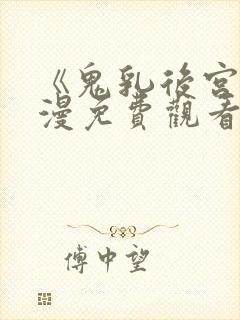 《鬼乳後宮
漫免費觀看
傅中望